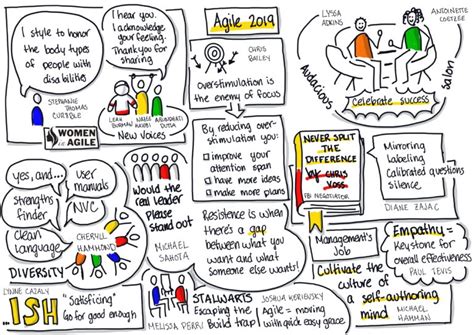 I style to honor
the body types
of people with
disabilities
STEPHANIE
THOMAS
CUR8BLE
WOMEN
in
AGILE
I hear you.
I acknowledge
your feeling.
Thank you for
sharing
LEAH
BURMAN
NAHEE
KAWI
ARUNDHATI
DUTTA
New Voices
Agile 2019
CHRIS
BAILEY
Overstimulation is
the enemy of focus
By reducing over-
stimulation you:
improve your
attention span
have more ideas
make more plans
LYSSA
ADKINS
ANTOINETTE
COETZEE
Audacious
Salon
Celebrate success
NEVER SPLIT
THE
DIFFERENCE
by CHRIS
VOSS
FBI NEGOTIATOR
Mirroring
Labeling
Calibrated questions
silence
DIANE ZAJAC
yes, and...
user
manuals
strengths
finder
NVC
Clean
language
CHERYLL
HAMMOND
DIVERSITY
Would the
real leader
Please
stand out
MICHAEL
SAHOTA
Resistance is when
there's a gap
between what you
want and what
someone else wants!
Management's
Job
Empathy =
Keystone for
overall effectiveness
PAUL TEVIS
Cultivate the
culture of
a self-authoring
mind
MICHAEL
HAMMAN
LYNNE CAZALY
ISH
"Satisficing"
Go for good enough
STALWARTS
MELISSA PERRI
Escaping the
Build trap
JOSHUA KERIEVSKY
Agile = moving
with quick easy grace